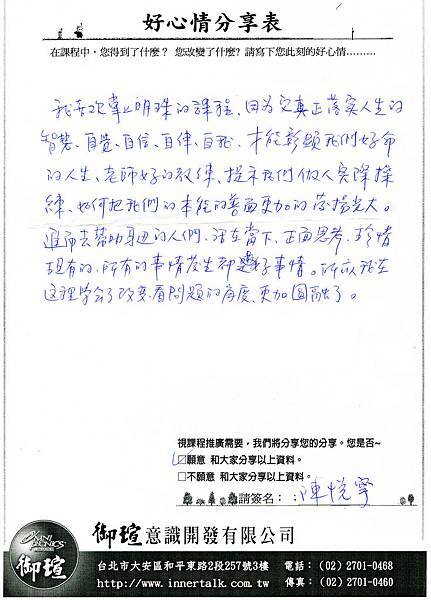 好心情分享表
在課程中，您得到了什麼？ 您改變了什麼? 請寫下您此刻的好心情………
我喜歡掌上明珠的課程，因為它真正落實人生的
智慧、自覺、自信、自律、自我、才能彰顯我們好命
的人生、老師好的教練、提示我們做人實際操
練、如何把我們的本能的善面更加的發揚光大。
進而去幫助身邊的人們、活在當下、正面思考、珍惜
現有的、所有的事情發生都是好事情。所以我在
這裡學會了改變、看問題的角度、更加圓融了。
視課程推廣需要，我們將分享您的分享。您是否~
☑願意 和大家分享以上資料。
□不願意 和大家分享以上資料。
請簽名： :陳悅寧
御瑄意識開發有限公司
御瑄
台北市大安區和平東路2段257號3樓 電話：(02) 2701-0468
http://www.innertalk.com.tw 傳真：(02) 2701-0460